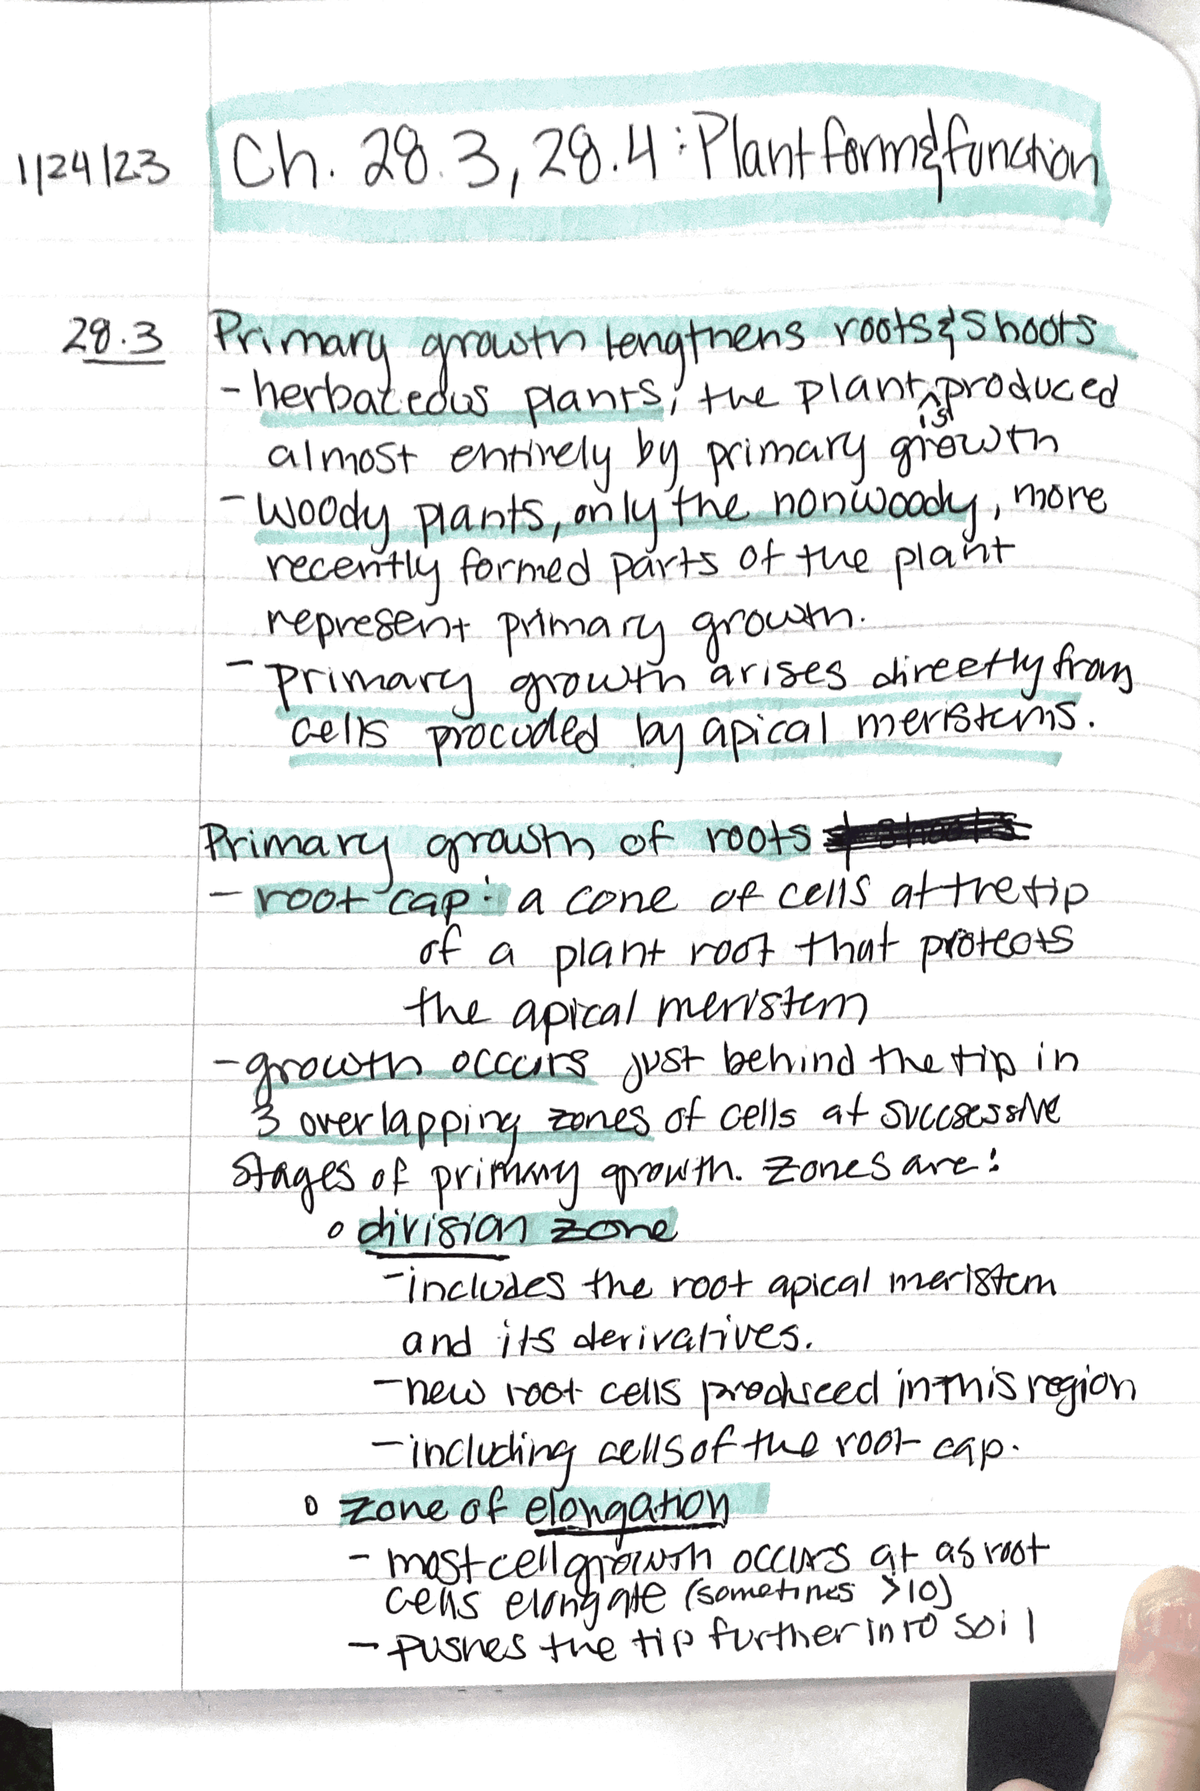 1/24/23
Ch. 28.3, 28.4: Plant form & function
28.3 Primary growth lengthens roots & shoots
- herbaceous plants; the plant is produced
almost entirely by primary growth
- Woody plants, only the nonwoody, more
recently formed parts of the plant
represent primary growth.
- primary growth arises directly from
cells procuded by apical meristems.
Primary growth of roots
- root cap: a cone of cells at the tip
of a plant root that protects
the apical meristem
- growth occurs just behind the tip in
3 overlapping zones of cells at succsessive
stages of primary growth. Zones are:
o division zone
- includes the root apical meristem
and its derivatives.
- new root cells produced in this region
- including cells of the root cap.
o zone of elongation
- most cell growth occurs at as root
cells elongate (sometimes >10)
- pushes the tip further into soil